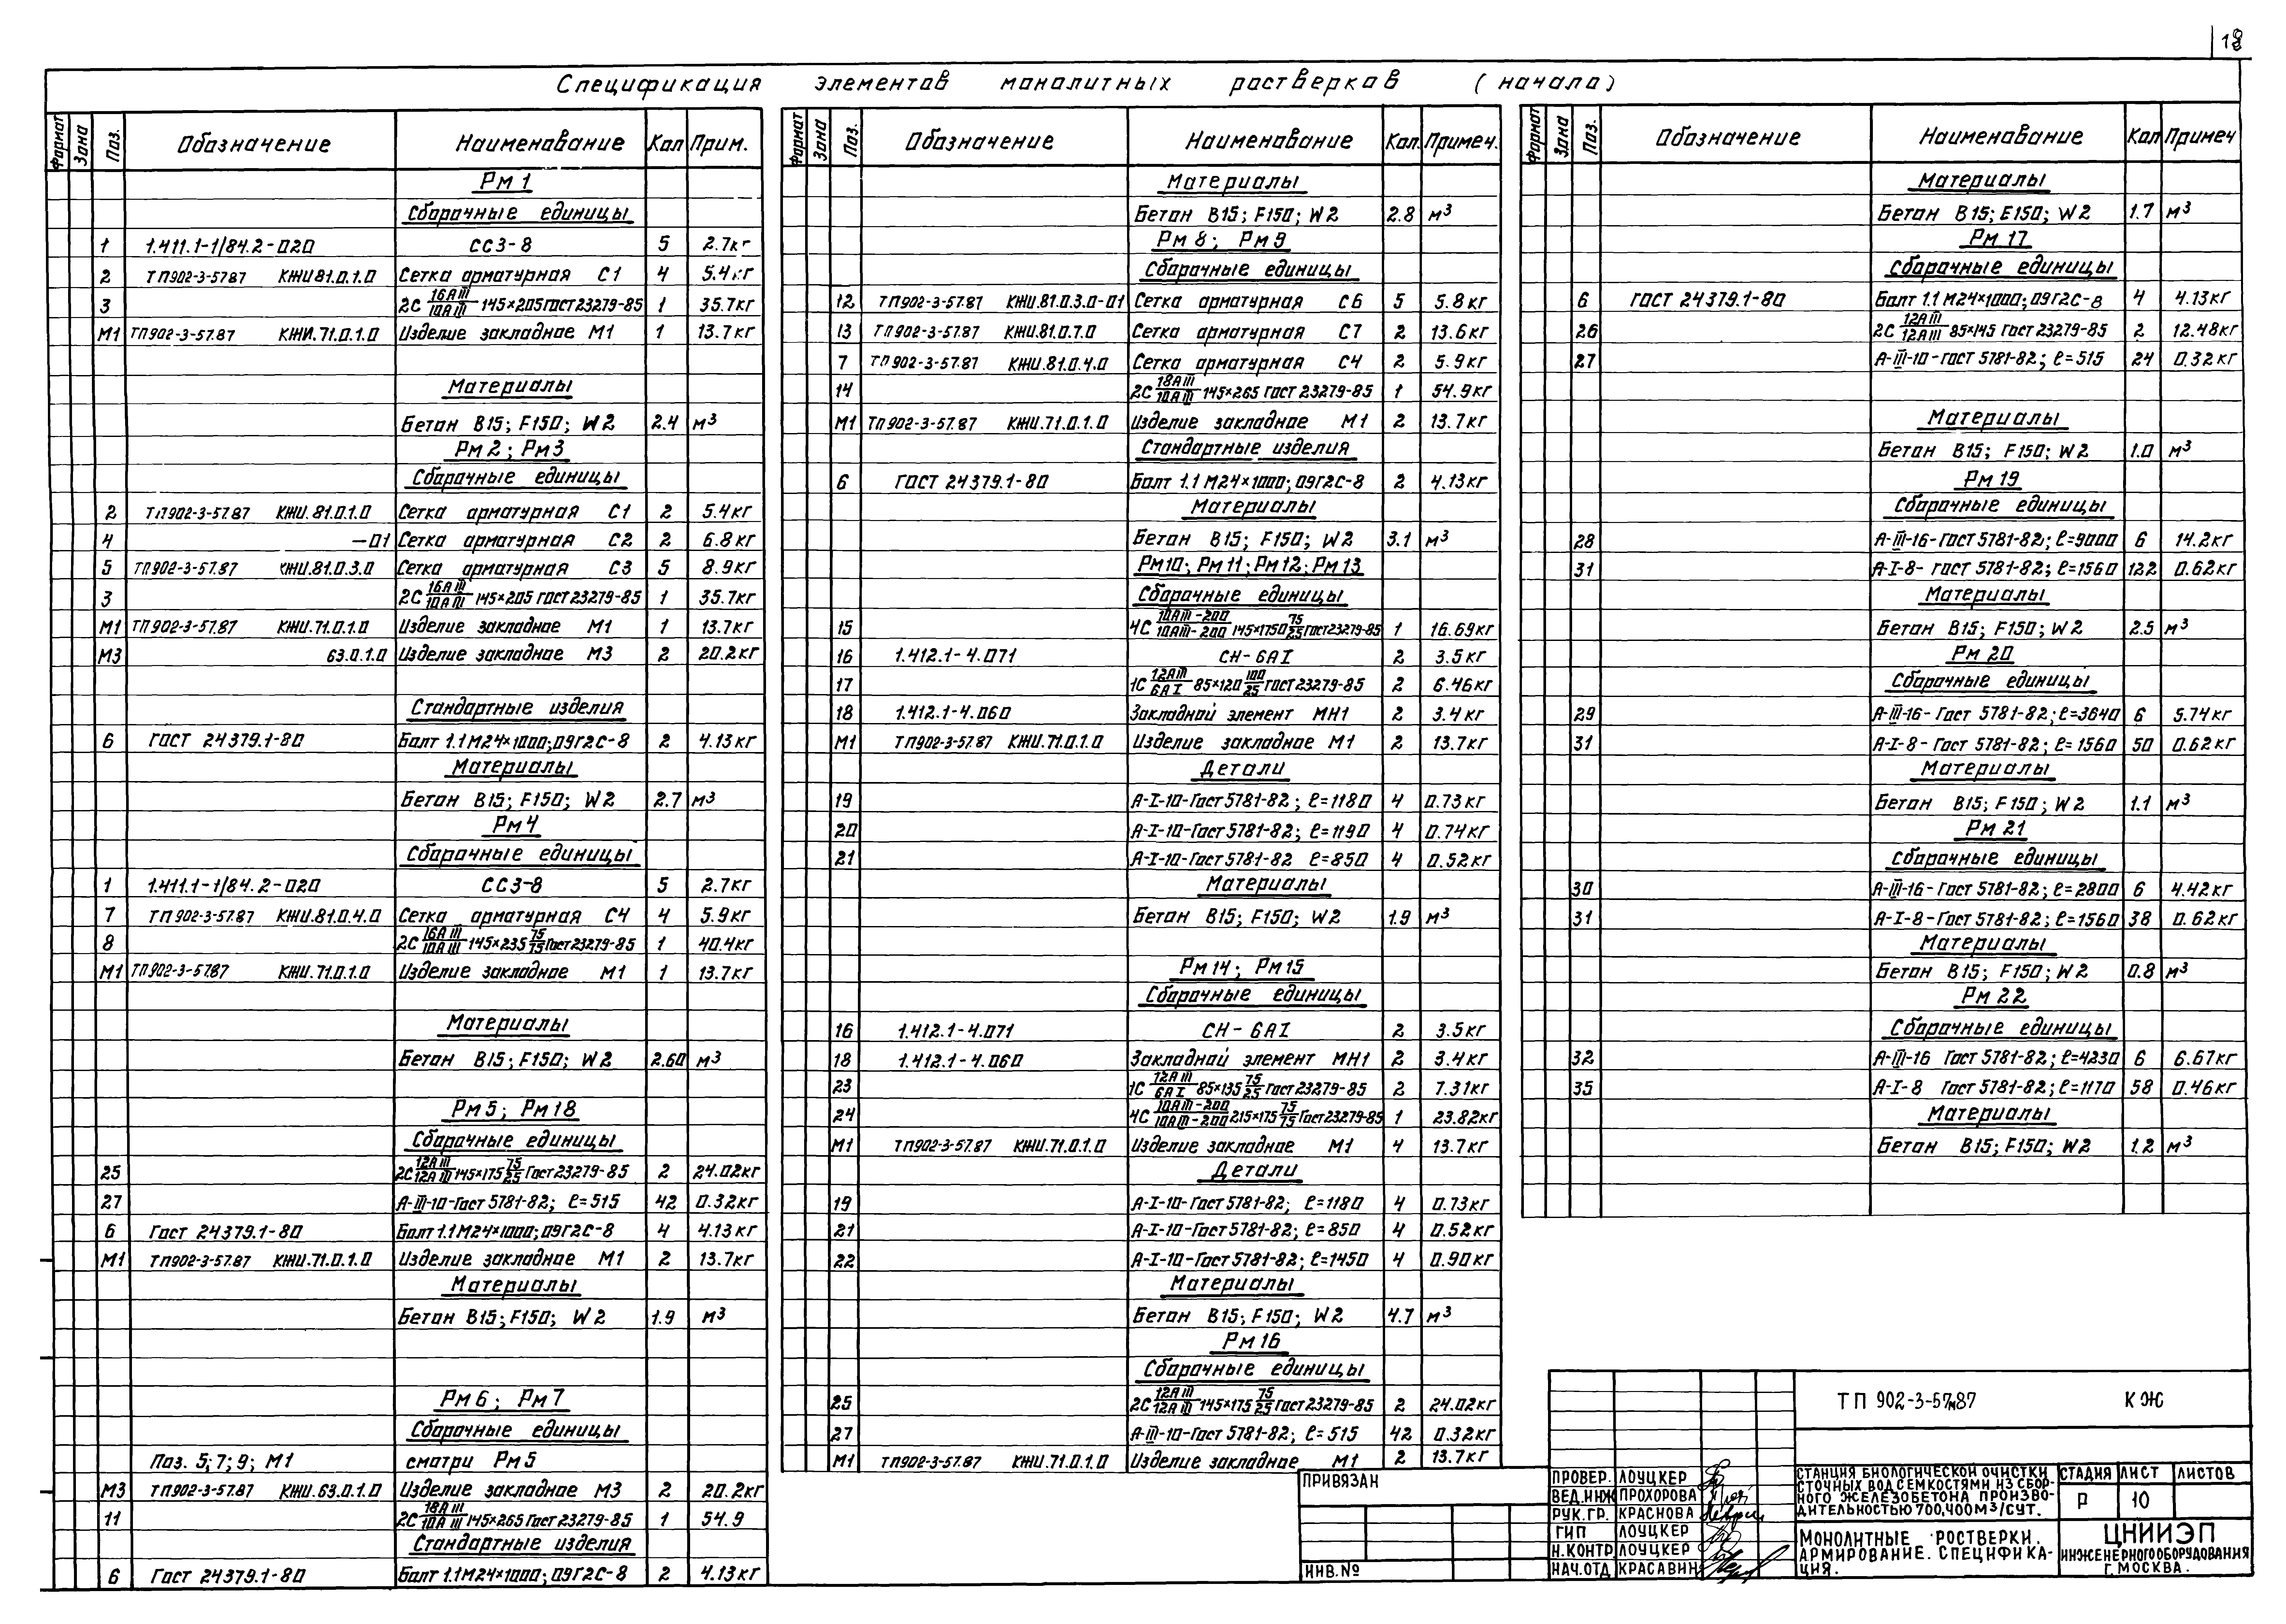 18
Спецификация элементов монолитных ростверков (начало)
Формат Зона Поз. Обозначение Наименование Кол Прим.
Рм 1
Сборочные единицы
1 1.411.1-1/84.2-020 СС3-8 5 2.7кг
2 ТП902-3-57.87 КЖИ81.0.1.0 Сетка арматурная С1 4 5.4кг
3 2С 16АIII/10АIII 145×205 Гост 23279-85 1 35.7кг
М1 ТП902-3-57.87 КЖИ.71.0.1.0 Изделие закладное М1 1 13.7кг
Материалы
Бетон В15; F150; W2 2.4 м³
Рм 2; Рм 3
Сборочные единицы
2 ТП902-3-57.87 КЖИ.81.0.1.0 Сетка арматурная С1 2 5.4кг
4 -01 Сетка арматурная С2 2 6.8кг
5 ТП902-3-57.87 КЖИ.81.0.3.0 Сетка арматурная С3 5 8.9кг
3 2С 16АIII/10АIII 145×205 Гост 23279-85 1 35.7кг
М1 ТП902-3-57.87 КЖИ.71.0.1.0 Изделие закладное М1 1 13.7кг
М3 63.0.1.0 Изделие закладное М3 2 20.2кг
Стандартные изделия
6 ГОСТ 24379.1-80 Болт 1.1 М24×1000; 09Г2С-8 2 4.13кг
Материалы
Бетон В15; F150; W2 2.7 м³
Рм 4
Сборочные единицы
1 1.411.1-1/84.2-020 СС3-8 5 2.7кг
7 ТП902-3-57.87 КЖИ.81.0.4.0 Сетка арматурная С4 4 5.9кг
8 2С 16АIII/10АIII 145×235 75/75 Гост 23279-85 1 40.4кг
М1 ТП902-3-57.87 КЖИ.71.0.1.0 Изделие закладное М1 1 13.7кг
Материалы
Бетон В15; F150; W2 2.60 м³
Рм 5; Рм 18
Сборочные единицы
25 2С 12АIII/12АIII 145×175 75/25 Гост 23279-85 2 24.02кг
27 А-III-10-Гост 5781-82; ℓ=515 42 0.32кг
6 Гост 24379.1-80 Болт 1.1 М24×1000; 09Г2С-8 4 4.13кг
М1 ТП902-3-57.87 КЖИ.71.0.1.0 Изделие закладное М1 2 13.7кг
Материалы
Бетон В15; F150; W2 1.9 м³
Рм 6; Рм 7
Сборочные единицы
Поз. 5; 7; 9; М1 смотри Рм 5
М3 ТП902-3-57.87 КЖИ.63.0.1.0 Изделие закладное М3 2 20.2кг
11 2С 18АIII/10АIII 145×265 Гост 23279-85 1 54.9
Стандартные изделия
6 Гост 24379.1-80 Болт 1.1 М24×1000; 09Г2С-8 2 4.13кг
Формат Зона Поз. Обозначение Наименование Кол. Примеч.
Материалы
Бетон В15; F150; W2 2.8 м³
Рм 8; Рм 9
Сборочные единицы
12 ТП902-3-57.87 КЖИ.81.0.3.0-01 Сетка арматурная С6 5 5.8кг
13 ТП902-3-57.87 КЖИ.81.0.7.0 Сетка арматурная С7 2 13.6кг
7 ТП902-3-57.87 КЖИ.81.0.4.0 Сетка арматурная С4 2 5.9кг
14 2С 18АIII/10АIII 145×265 Гост 23279-85 1 54.9кг
М1 ТП902-3-57.87 КЖИ.71.0.1.0 Изделие закладное М1 2 13.7кг
Стандартные изделия
6 ГОСТ 24379.1-80 Болт 1.1 М24×1000; 09Г2С-8 2 4.13кг
Материалы
Бетон В15; F150; W2 3.1 м³
Рм10; Рм11; Рм12; Рм13
Сборочные единицы
15 4С 10АIII-200/10АIII-200 145×1750 75/25 Гост 23279-85 1 16.69кг
16 1.412.1-4.071 СН-6АI 2 3.5кг
17 1С 12АIII/6АI 85×120 100/25 Гост 23279-85 2 6.46кг
18 1.412.1-4.060 Закладной элемент МН1 2 3.4кг
М1 ТП902-3-57.87 КЖИ.71.0.1.0 Изделие закладное М1 2 13.7кг
Детали
19 А-I-10-Гост 5781-82; ℓ=1180 4 0.73кг
20 А-I-10-Гост 5781-82; ℓ=1190 4 0.74кг
21 А-I-10-Гост 5781-82 ℓ=850 4 0.52кг
Материалы
Бетон В15; F150; W2 1.9 м³
Рм 14; Рм 15
Сборочные единицы
16 1.412.1-4.071 СН-6АI 2 3.5кг
18 1.412.1-4.060 Закладной элемент МН1 2 3.4кг
23 1С 12АIII/6АI 85×135 75/25 Гост 23279-85 2 7.31кг
24 4С 10АIII-200/10АIII-200 215×175 75/75 Гост 23279-85 1 23.82кг
М1 ТП902-3-57.87 КЖИ.71.0.1.0 Изделие закладное М1 4 13.7кг
Детали
19 А-I-10-Гост 5781-82; ℓ=1180 4 0.73кг
21 А-I-10-Гост 5781-82; ℓ=850 4 0.52кг
22 А-I-10-Гост 5781-82; ℓ=1450 4 0.90кг
Материалы
Бетон В15; F150; W2 4.7 м³
Рм 16
Сборочные единицы
25 2С 12АIII/12АIII 145×175 75/25 Гост 23279-85 2 24.02кг
27 А-III-10-Гост 5781-82; ℓ=515 42 0.32кг
М1 ТП902-3-57.87 КЖИ.71.0.1.0 Изделие закладное М1 2 13.7кг
Формат Зона Поз. Обозначение Наименование Кол Примеч
Материалы
Бетон В15; F150; W2 1.7 м³
Рм 17
Сборочные единицы
6 ГОСТ 24379.1-80 Болт 1.1 М24×1000; 09Г2С-8 4 4.13кг
26 2С 12АIII/12АIII 85×145 Гост 23279-85 2 12.48кг
27 А-III-10-Гост 5781-82; ℓ=515 24 0.32кг
Материалы
Бетон В15; F150; W2 1.0 м³
Рм 19
Сборочные единицы
28 А-III-16-Гост 5781-82; ℓ=9000 6 14.2кг
31 А-I-8-Гост 5781-82; ℓ=1560 122 0.62кг
Материалы
Бетон В15; F150; W2 2.5 м³
Рм 20
Сборочные единицы
29 А-III-16-Гост 5781-82; ℓ=3640 6 5.74кг
31 А-I-8-Гост 5781-82; ℓ=1560 50 0.62кг
Материалы
Бетон В15; F150; W2 1.1 м³
Рм 21
Сборочные единицы
30 А-III-16-Гост 5781-82; ℓ=2800 6 4.42кг
31 А-I-8-Гост 5781-82; ℓ=1560 38 0.62кг
Материалы
Бетон В15; F150; W2 0.8 м³
Рм 22
Сборочные единицы
32 А-III-16 Гост 5781-82; ℓ=4230 6 6.67кг
35 А-I-8 Гост 5781-82; ℓ=1170 58 0.46кг
Материалы
Бетон В15; F150; W2 1.2 м³
ПРИВЯЗАН
ИНВ. №
ТП 902-3-57.87 КЖ
ПРОВЕР. ЛОУЦКЕР
ВЕД.ИНЖ ПРОХОРОВА
РУК.ГР. КРАСНОВА
ГИП ЛОУЦКЕР
Н.КОНТР. ЛОУЦКЕР
НАЧ.ОТД КРАСАВИН
СТАНЦИЯ БИОЛОГИЧЕСКОЙ ОЧИСТКИ
СТОЧНЫХ ВОД С ЕМКОСТЯМИ ИЗ СБОР-
НОГО ЖЕЛЕЗОБЕТОНА ПРОИЗВО-
ДИТЕЛЬНОСТЬЮ 700,400М³/СУТ.
СТАДИЯ ЛИСТ ЛИСТОВ
Р 10
МОНОЛИТНЫЕ РОСТВЕРКИ.
АРМИРОВАНИЕ. СПЕЦИФИКА-
ЦИЯ.
ЦНИИЭП
ИНЖЕНЕРНОГО ОБОРУДОВАНИЯ
Г. МОСКВА.